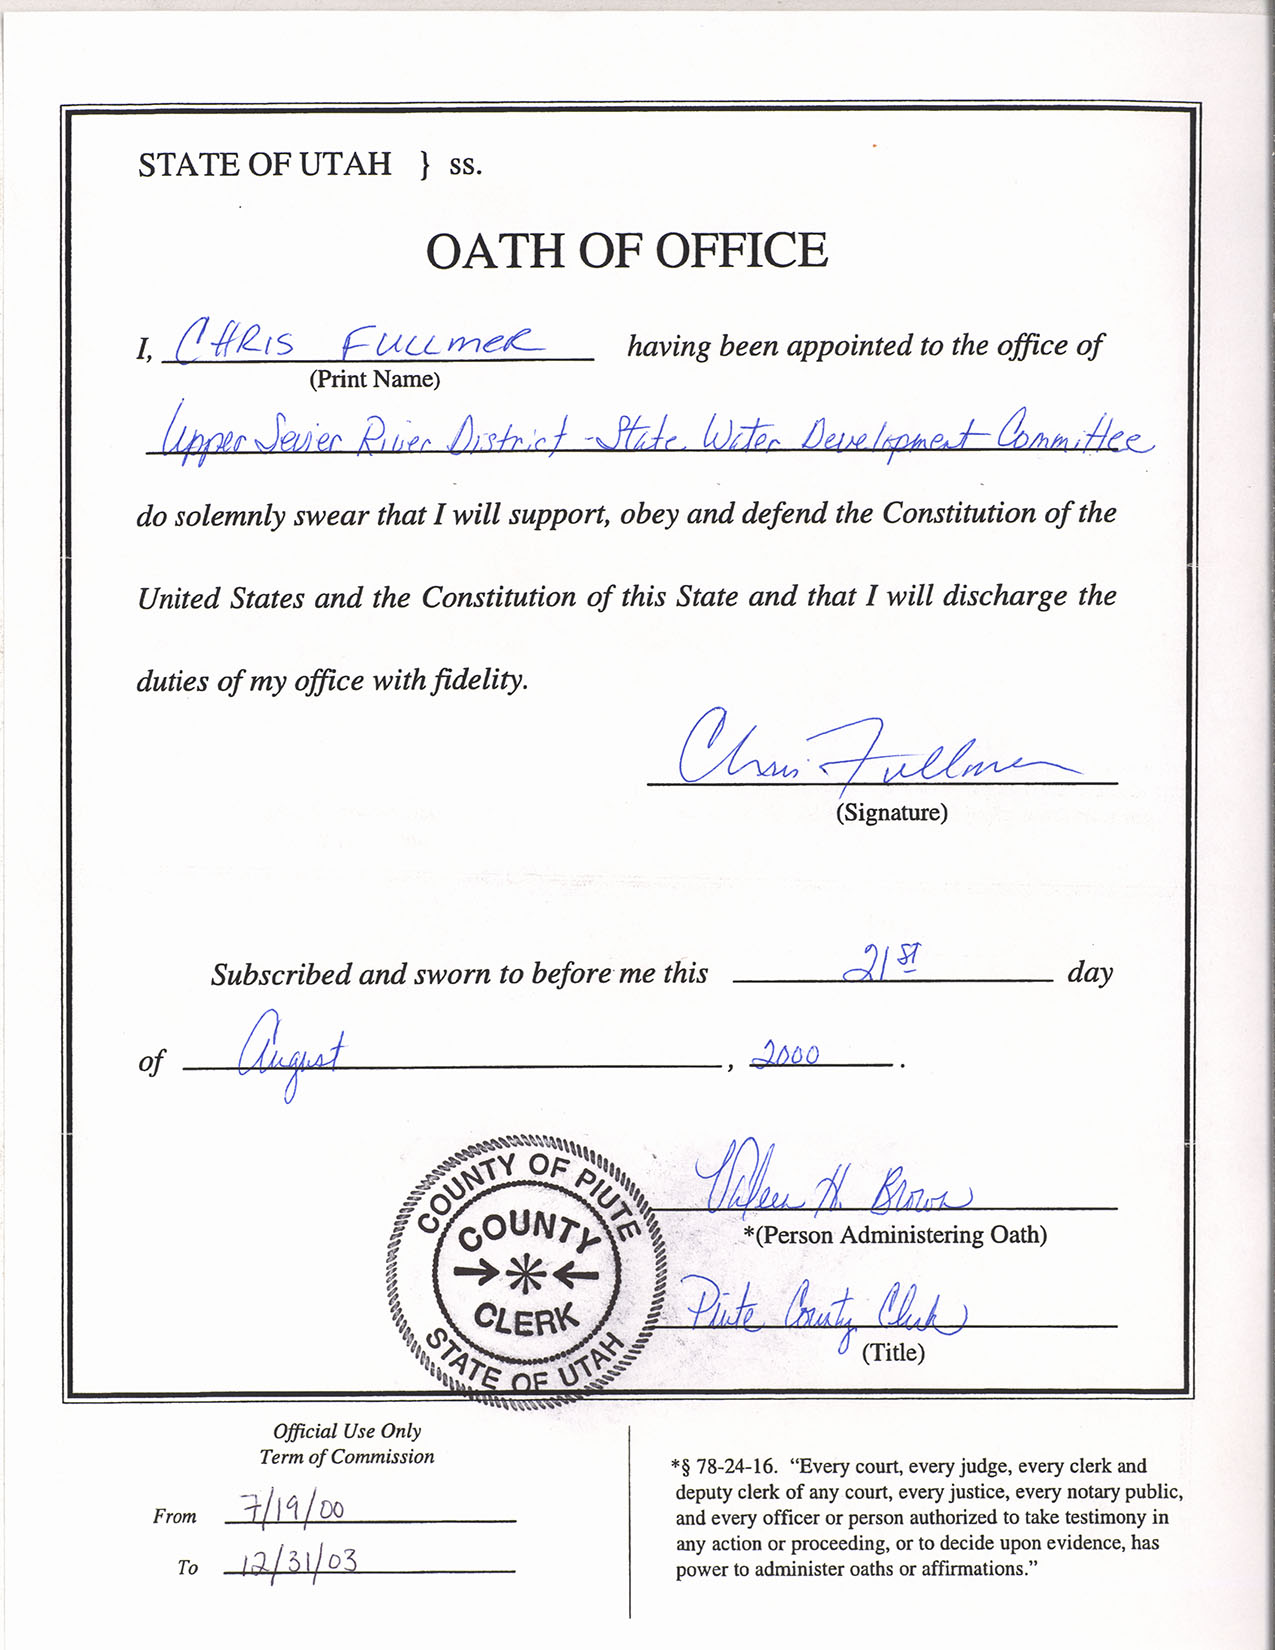 STATE OF UTAH } ss.
OATH OF OFFICE
I, CHRIS FULLMER having been appointed to the office of
(Print Name)
Upper Sevier River District - State Water Development Committee
do solemnly swear that I will support, obey and defend the Constitution of the
United States and the Constitution of this State and that I will discharge the
duties of my office with fidelity.
Chris Fullmer
(Signature)
Subscribed and sworn to before me this 21st day
of August, 2000.
COUNTY OF PIUTE
COUNTY
CLERK
STATE OF UTAH
Valeen H. Brown
*(Person Administering Oath)
Piute County Clerk
(Title)
Official Use Only
Term of Commission
From 7/19/00
To 12/31/03
*§ 78-24-16. “Every court, every judge, every clerk and
deputy clerk of any court, every justice, every notary public,
and every officer or person authorized to take testimony in
any action or proceeding, or to decide upon evidence, has
power to administer oaths or affirmations.”